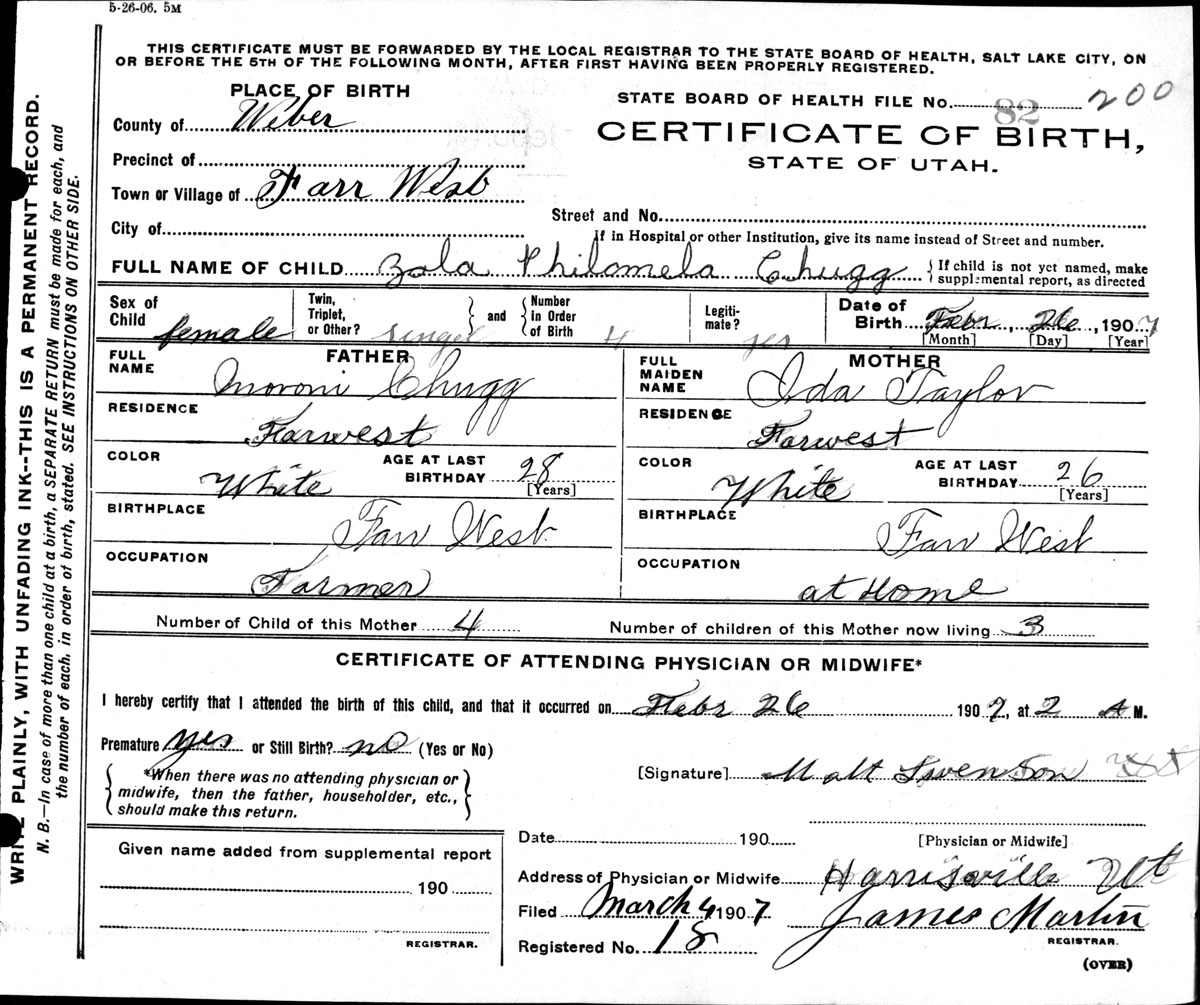 5-26-06. 5M
THIS CERTIFICATE MUST BE FORWARDED BY THE LOCAL REGISTRAR TO THE STATE BOARD OF HEALTH, SALT LAKE CITY, ON
OR BEFORE THE 5TH OF THE FOLLOWING MONTH, AFTER FIRST HAVING BEEN PROPERLY REGISTERED.
WRITE PLAINLY, WITH UNFADING INK--THIS IS A PERMANENT RECORD.
N. B.—In case of more than one child at a birth, a SEPARATE RETURN must be made for each, and
the number of each, in order of birth, stated. SEE INSTRUCTIONS ON OTHER SIDE.
PLACE OF BIRTH
County of Wiber
Precinct of
Town or Village of Farr West
City of
STATE BOARD OF HEALTH FILE No. 82 200
CERTIFICATE OF BIRTH,
STATE OF UTAH.
Street and No.
If in Hospital or other Institution, give its name instead of Street and number.
FULL NAME OF CHILD Zola Philomela Chugg { If child is not yet named, make
supplemental report, as directed
Sex of Child female
Twin, Triplet, or Other? singel } and { Number in Order of Birth 4
Legiti-mate? yes
Date of Birth Febr, 26, 1907
[Month] [Day] [Year]
FATHER
FULL NAME Moroni Chugg
RESIDENCE Farwest
COLOR White
AGE AT LAST BIRTHDAY 28 [Years]
BIRTHPLACE Farr West
OCCUPATION Farmer
MOTHER
FULL MAIDEN NAME Ida Taylor
RESIDENCE Farwest
COLOR White
AGE AT LAST BIRTHDAY 26 [Years]
BIRTHPLACE Farr West
OCCUPATION at Home
Number of Child of this Mother 4
Number of children of this Mother now living 3
CERTIFICATE OF ATTENDING PHYSICIAN OR MIDWIFE*
I hereby certify that I attended the birth of this child, and that it occurred on Febr 26 1907, at 2 A M.
Premature yes or Still Birth? no (Yes or No)
{ *When there was no attending physician or
midwife, then the father, householder, etc.,
should make this return. }
[Signature] Malt Swenson
[Physician or Midwife]
Given name added from supplemental report
190
REGISTRAR.
Date 190
Address of Physician or Midwife Harrisville Ut
Filed March 4, 1907 James Martin
REGISTRAR.
Registered No. 18
(OVER)